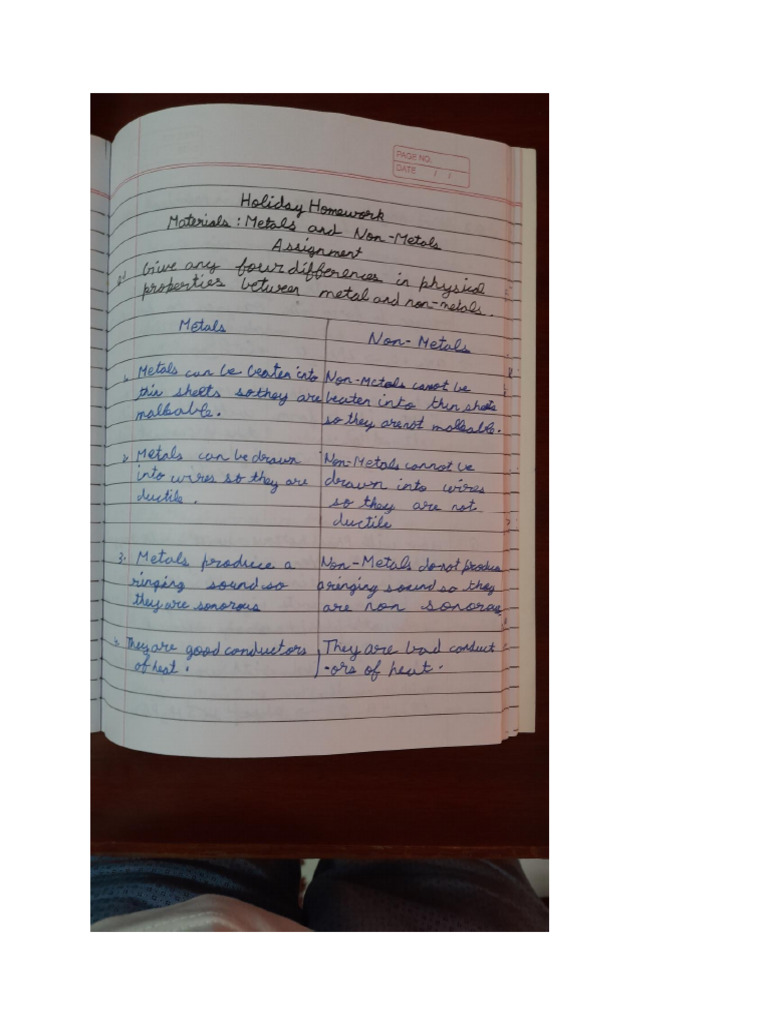 PAGE NO.
DATE / /
Holiday Homework
Materials : Metals and Non-Metals
Assignment
Q1 Give any four differences in physical
properties between metal and non-metals.
Metals
Non-Metals
1. Metals can be beaten into
thin sheets so they are
malleable.
Non-Metals cannot be
beaten into thin sheets
so they are not malleable.
2. Metals can be drawn
into wires so they are
ductile.
Non-Metals cannot be
drawn into wires
so they are not
ductile
3. Metals produce a
ringing sound so
they are sonorous
Non-Metals do not produce
a ringing sound so they
are non sonorous
They are good conductors
of heat.
They are bad conduct
-ors of heat.